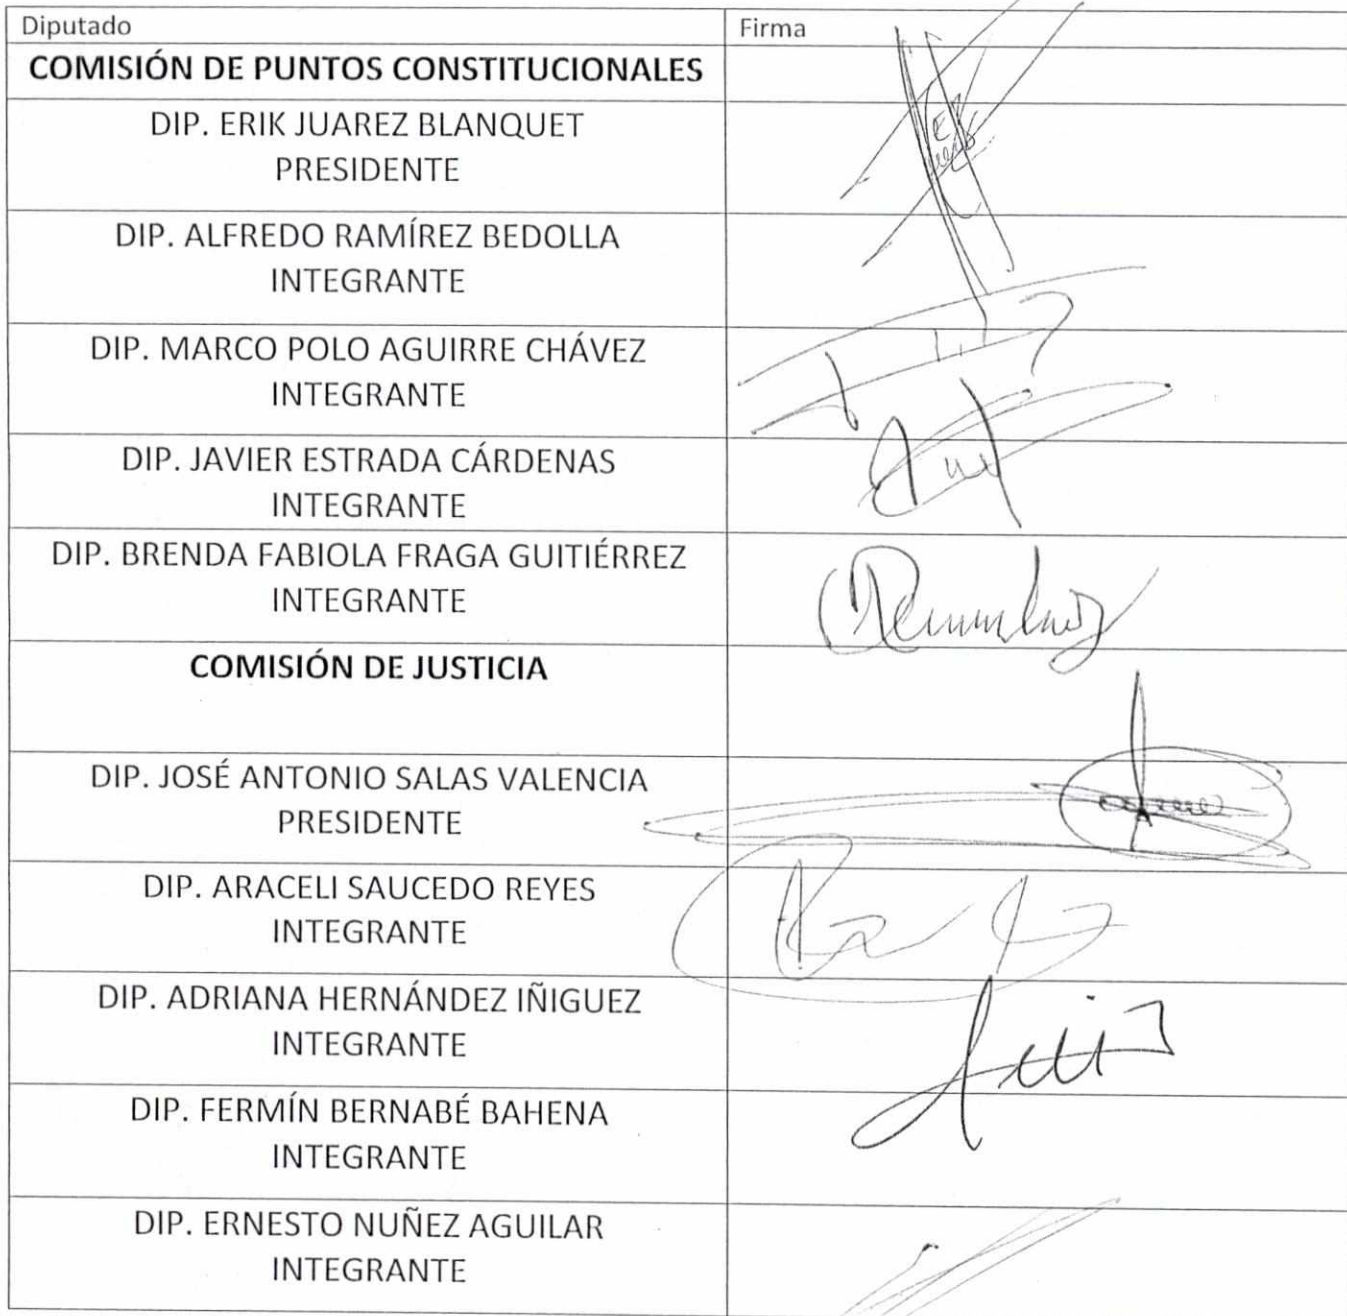 Diputado
Firma
COMISIÓN DE PUNTOS CONSTITUCIONALES
DIP. ERIK JUAREZ BLANQUET
PRESIDENTE
DIP. ALFREDO RAMÍREZ BEDOLLA
INTEGRANTE
DIP. MARCO POLO AGUIRRE CHÁVEZ
INTEGRANTE
DIP. JAVIER ESTRADA CÁRDENAS
INTEGRANTE
DIP. BRENDA FABIOLA FRAGA GUITIÉRREZ
INTEGRANTE
COMISIÓN DE JUSTICIA
DIP. JOSÉ ANTONIO SALAS VALENCIA
PRESIDENTE
DIP. ARACELI SAUCEDO REYES
INTEGRANTE
DIP. ADRIANA HERNÁNDEZ IÑIGUEZ
INTEGRANTE
DIP. FERMÍN BERNABÉ BAHENA
INTEGRANTE
DIP. ERNESTO NUÑEZ AGUILAR
INTEGRANTE